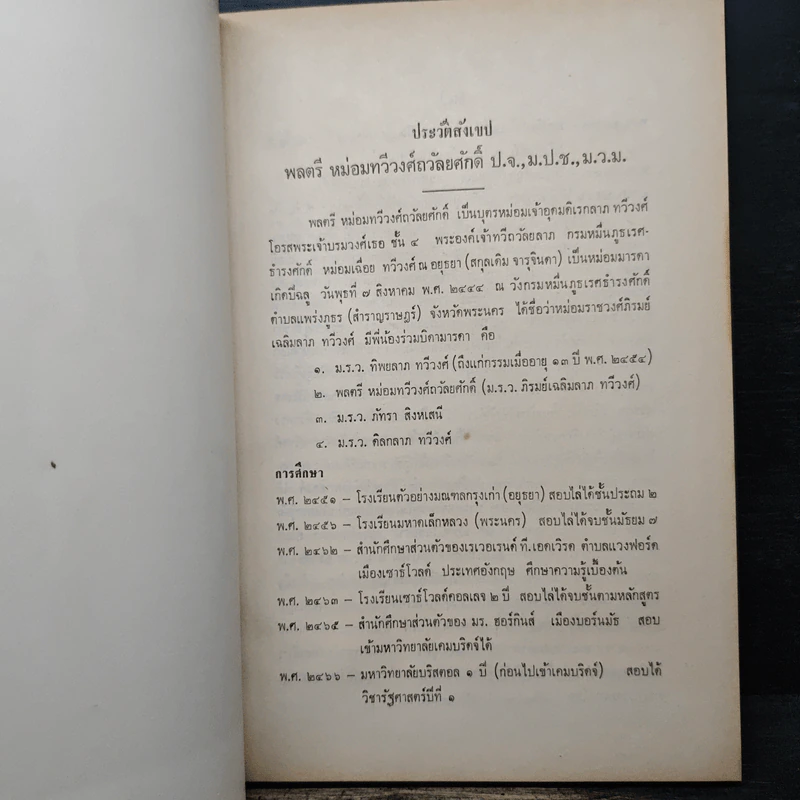 ประวัติสังเขป
พลตรี หม่อมทวีวงศ์ถวัลยศักดิ์ ป.จ.,ม.ป.ช.,ม.ว.ม.
พลตรี หม่อมทวีวงศ์ถวัลยศักดิ์ เป็นบุตรหม่อมเจ้าอุดมดิเรกลาภ ทวีวงศ์
โอรสพระเจ้าบรมวงศ์เธอ ชั้น ๔ พระองค์เจ้าทวีถวัลยลาภ กรมหมื่นภูธเรศ-
ธำรงศักดิ์ หม่อมเฉื่อย ทวีวงศ์ ณ อยุธยา (สกุลเดิม จารุจินดา) เป็นหม่อมมารดา
เกิดปีฉลู วันพุธที่ ๗ สิงหาคม พ.ศ. ๒๔๔๔ ณ วังกรมหมื่นภูธเรศธำรงศักดิ์
ตำบลแพร่งภูธร (สำราญราษฎร์) จังหวัดพระนคร ได้ชื่อว่าหม่อมราชวงศ์ภิรมย์
เฉลิมลาภ ทวีวงศ์ มีพี่น้องร่วมบิดามารดา คือ
๑. ม.ร.ว. ทิพยลาภ ทวีวงศ์ (ถึงแก่กรรมเมื่ออายุ ๑๓ ปี พ.ศ. ๒๔๕๔)
๒. พลตรี หม่อมทวีวงศ์ถวัลยศักดิ์ (ม.ร.ว. ภิรมย์เฉลิมลาภ ทวีวงศ์)
๓. ม.ร.ว. ภัทรา สิงหเสนี
๔. ม.ร.ว. ดิลกลาภ ทวีวงศ์
การศึกษา
พ.ศ. ๒๔๕๑ – โรงเรียนตัวอย่างมณฑลกรุงเก่า (อยุธยา) สอบไล่ได้ชั้นประถม ๒
พ.ศ. ๒๔๕๖ – โรงเรียนมหาดเล็กหลวง (พระนคร) สอบไล่ได้จบชั้นมัธยม ๗
พ.ศ. ๒๔๖๒ – สำนักศึกษาส่วนตัวของเรเวอเรนด์ ที. เอดเวิรด ตำบลแวงฟอร์ด
เมืองเซาธ์โวลด์ ประเทศอังกฤษ ศึกษาความรู้เบื้องต้น
พ.ศ. ๒๔๖๓ – โรงเรียนเซาธ์โวลด์คอลเลจ ๒ ปี สอบไล่ได้จบชั้นตามหลักสูตร
พ.ศ. ๒๔๖๕ – สำนักศึกษาส่วนตัวของ มร. ฮอร์กินส์ เมืองบอร์นมัธ สอบ
เข้ามหาวิทยาลัยเคมบริดจ์ได้
พ.ศ. ๒๔๖๖ – มหาวิทยาลัยบริสตอล ๑ ปี (ก่อนไปเข้าเคมบริดจ์) สอบได้
วิชารัฐศาสตร์ปีที่ ๑